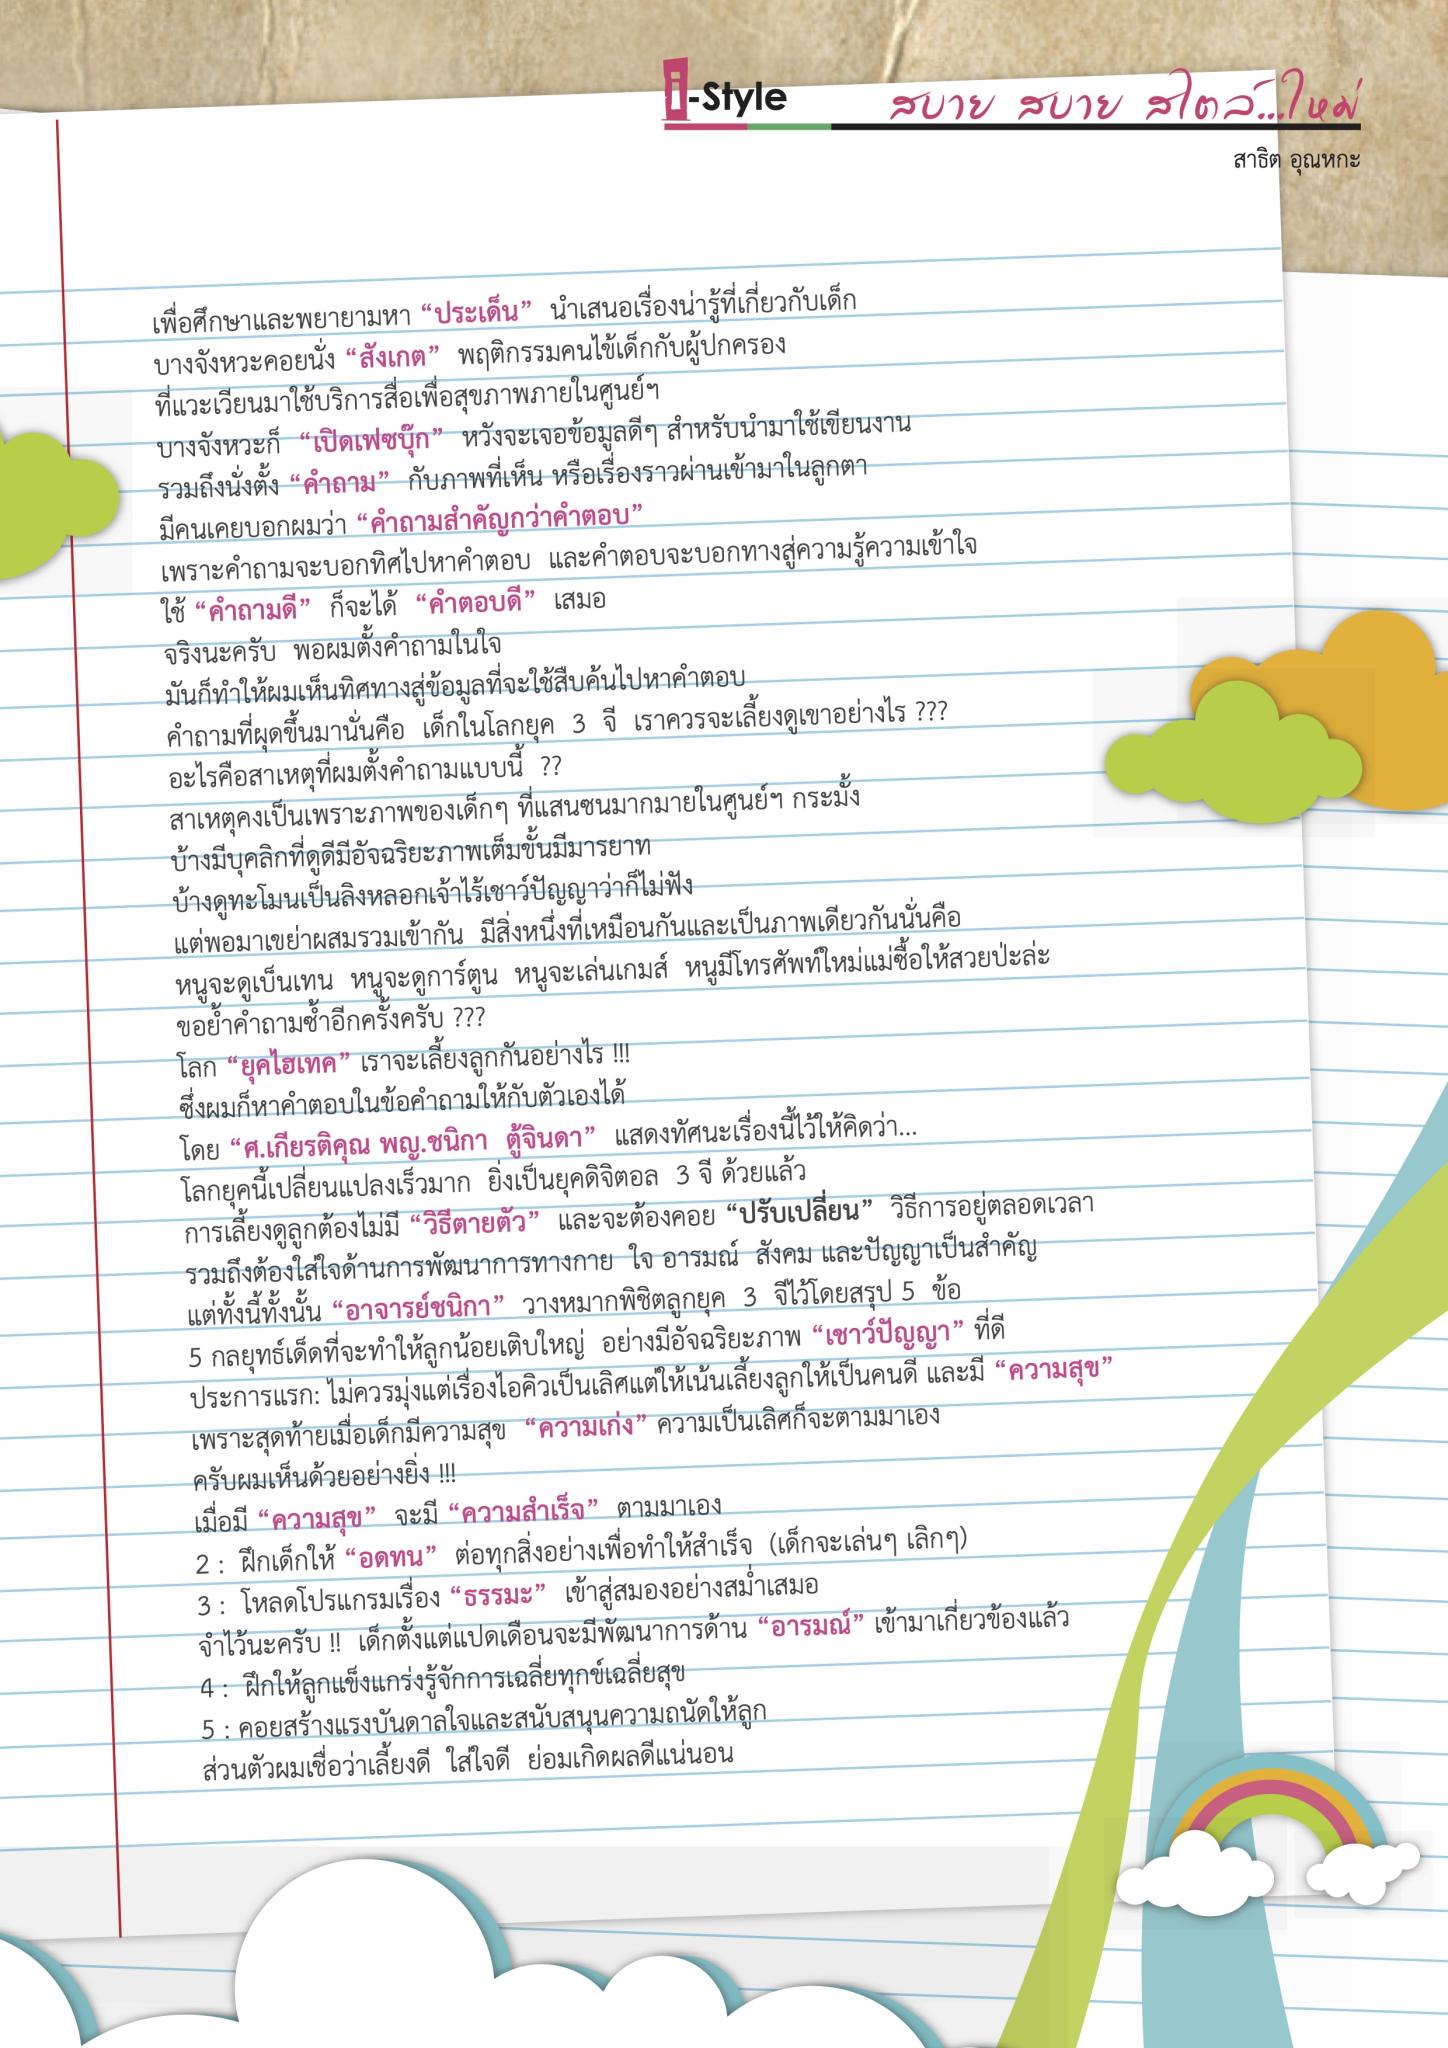 i-Style
สบาย สบาย สไตล์...ใหม่
สาธิต อุณหกะ
เพื่อศึกษาและพยายามหา “ประเด็น” นำเสนอเรื่องน่ารู้ที่เกี่ยวกับเด็ก
บางจังหวะคอยนั่ง “สังเกต” พฤติกรรมคนไข้เด็กกับผู้ปกครอง
ที่แวะเวียนมาใช้บริการสื่อเพื่อสุขภาพภายในศูนย์ฯ
บางจังหวะก็ “เปิดเฟซบุ๊ก” หวังจะเจอข้อมูลดีๆ สำหรับนำมาใช้เขียนงาน
รวมถึงนั่งตั้ง “คำถาม” กับภาพที่เห็น หรือเรื่องราวผ่านเข้ามาในลูกตา
มีคนเคยบอกผมว่า “คำถามสำคัญกว่าคำตอบ”
เพราะคำถามจะบอกทิศไปหาคำตอบ และคำตอบจะบอกทางสู่ความรู้ความเข้าใจ
ใช้ “คำถามดี” ก็จะได้ “คำตอบดี” เสมอ
จริงนะครับ พอผมตั้งคำถามในใจ
มันก็ทำให้ผมเห็นทิศทางสู่ข้อมูลที่จะใช้สืบค้นไปหาคำตอบ
คำถามที่ผุดขึ้นมานั่นคือ เด็กในโลกยุค 3 จี เราควรจะเลี้ยงดูเขาอย่างไร ???
อะไรคือสาเหตุที่ผมตั้งคำถามแบบนี้ ??
สาเหตุคงเป็นเพราะภาพของเด็กๆ ที่แสนซนมากมายในศูนย์ฯ กระมั้ง
บ้างมีบุคลิกที่ดูดีมีอัจฉริยะภาพเต็มขั้นมีมารยาท
บ้างดูทะโมนเป็นลิงหลอกเจ้าไร้เชาว์ปัญญาว่าก็ไม่ฟัง
แต่พอมาเขย่าผสมรวมเข้ากัน มีสิ่งหนึ่งที่เหมือนกันและเป็นภาพเดียวกันนั่นคือ
หนูจะดูเบ็นเทน หนูจะดูการ์ตูน หนูจะเล่นเกมส์ หนูมีโทรศัพท์ใหม่แม่ซื้อให้สวยป่ะล่ะ
ขอย้ำคำถามซ้ำอีกครั้งครับ ???
โลก “ยุคไฮเทค” เราจะเลี้ยงลูกกันอย่างไร !!!
ซึ่งผมก็หาคำตอบในข้อคำถามให้กับตัวเองได้
โดย “ศ.เกียรติคุณ พญ.ชนิกา ตู้จินดา” แสดงทัศนะเรื่องนี้ไว้ให้คิดว่า...
โลกยุคนี้เปลี่ยนแปลงเร็วมาก ยิ่งเป็นยุคดิจิตอล 3 จี ด้วยแล้ว
การเลี้ยงดูลูกต้องไม่มี “วิธีตายตัว” และจะต้องคอย “ปรับเปลี่ยน” วิธีการอยู่ตลอดเวลา
รวมถึงต้องใส่ใจด้านการพัฒนาการทางกาย ใจ อารมณ์ สังคม และปัญญาเป็นสำคัญ
แต่ทั้งนี้ทั้งนั้น “อาจารย์ชนิกา” วางหมากพิชิตลูกยุค 3 จีไว้โดยสรุป 5 ข้อ
5 กลยุทธ์เด็ดที่จะทำให้ลูกน้อยเติบใหญ่ อย่างมีอัจฉริยะภาพ “เชาว์ปัญญา” ที่ดี
ประการแรก: ไม่ควรมุ่งแต่เรื่องไอคิวเป็นเลิศแต่ให้เน้นเลี้ยงลูกให้เป็นคนดี และมี “ความสุข”
เพราะสุดท้ายเมื่อเด็กมีความสุข “ความเก่ง” ความเป็นเลิศก็จะตามมาเอง
ครับผมเห็นด้วยอย่างยิ่ง !!!
เมื่อมี “ความสุข” จะมี “ความสำเร็จ” ตามมาเอง
2 : ฝึกเด็กให้ “อดทน” ต่อทุกสิ่งอย่างเพื่อทำให้สำเร็จ (เด็กจะเล่นๆ เลิกๆ)
3 : โหลดโปรแกรมเรื่อง “ธรรมะ” เข้าสู่สมองอย่างสม่ำเสมอ
จำไว้นะครับ !! เด็กตั้งแต่แปดเดือนจะมีพัฒนาการด้าน “อารมณ์” เข้ามาเกี่ยวข้องแล้ว
4 : ฝึกให้ลูกแข็งแกร่งรู้จักการเฉลี่ยทุกข์เฉลี่ยสุข
5 : คอยสร้างแรงบันดาลใจและสนับสนุนความถนัดให้ลูก
ส่วนตัวผมเชื่อว่าเลี้ยงดี ใส่ใจดี ย่อมเกิดผลดีแน่นอน